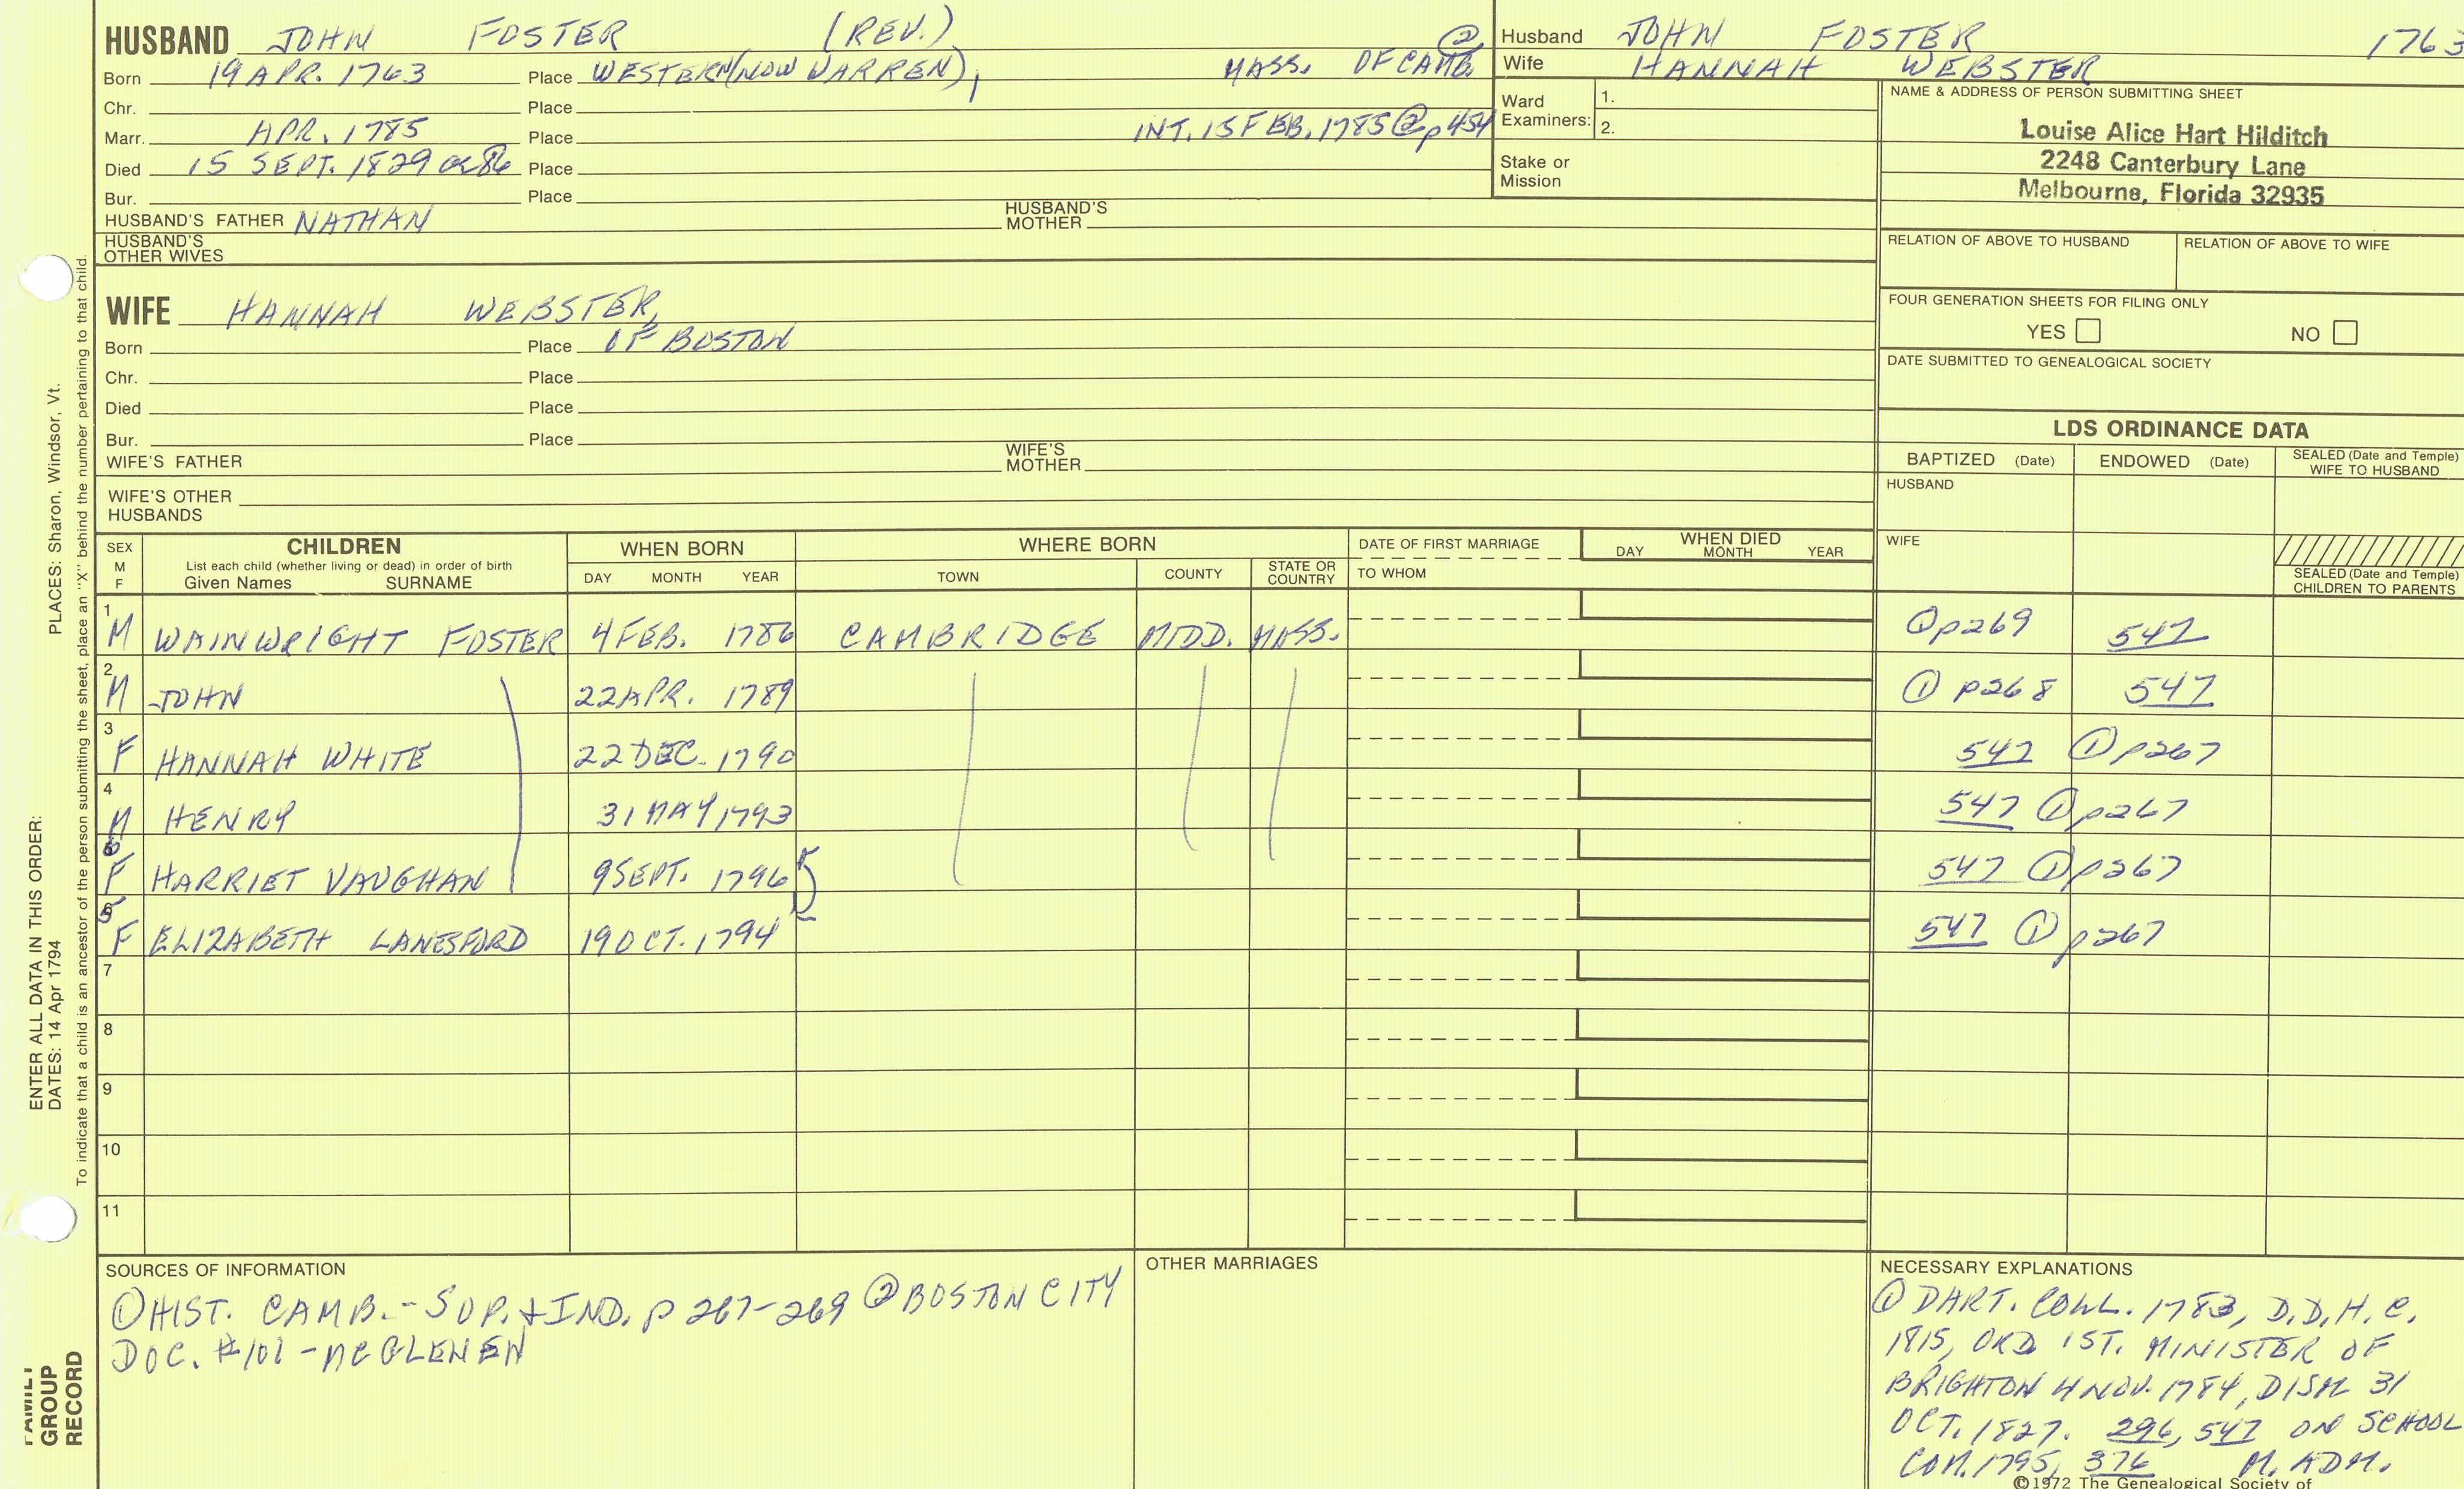 HUSBAND JOHN FOSTER (REV.)
Born 19 APR. 1763 Place WESTERN (NOW WARREN), MASS. OF CAMB. ②
Chr. Place
Marr. APR. 1785 Place INT. 15 FEB. 1785 ② p454
Died 15 SEPT. 1829 Place
Bur. Place
HUSBAND'S FATHER NATHAN HUSBAND'S MOTHER
HUSBAND'S OTHER WIVES
WIFE HANNAH WEBSTER,
Born Place OF BOSTON
Chr. Place
Died Place
Bur. Place
WIFE'S FATHER WIFE'S MOTHER
WIFE'S OTHER HUSBANDS
Husband JOHN FOSTER 1763
Wife HANNAH WEBSTER
Ward Examiners: 1.
2.
Stake or Mission
NAME & ADDRESS OF PERSON SUBMITTING SHEET
Louise Alice Hart Hilditch
2248 Canterbury Lane
Melbourne, Florida 32935
RELATION OF ABOVE TO HUSBAND RELATION OF ABOVE TO WIFE
FOUR GENERATION SHEETS FOR FILING ONLY
YES NO
DATE SUBMITTED TO GENEALOGICAL SOCIETY
LDS ORDINANCE DATA
BAPTIZED (Date) ENDOWED (Date) SEALED (Date and Temple) WIFE TO HUSBAND
HUSBAND
WIFE
SEALED (Date and Temple) CHILDREN TO PARENTS
SEX M F CHILDREN WHEN BORN WHERE BORN DATE OF FIRST MARRIAGE WHEN DIED
List each child (whether living or dead) in order of birth
Given Names SURNAME DAY MONTH YEAR TOWN COUNTY STATE OR COUNTRY TO WHOM DAY MONTH YEAR
1 M WAINWRIGHT FOSTER 4 FEB. 1786 CAMBRIDGE MIDD. MASS. ① p269 547
2 M JOHN 22 APR. 1789 ① p268 547
3 F HANNAH WHITE 22 DEC. 1790 547 ① p267
4 M HENRY 31 MAY 1793 547 ① p267
6 F HARRIET VAUGHAN 9 SEPT. 1796 547 ① p267
5 F ELIZABETH LANESFORD 19 OCT. 1794 547 ① p267
7
8
9
10
11
SOURCES OF INFORMATION
① HIST. CAMB. - SUP. & IND. p 267-269 ② BOSTON CITY
DOC. #101 - MCGLENEN
OTHER MARRIAGES
NECESSARY EXPLANATIONS
① DART. COLL. 1783, D.D, H.C.
1815, ORD 1ST. MINISTER OF
BRIGHTON 4 NOV. 1784, DISM 31
OCT. 1827. 296, 547 ON SCHOOL
COM. 1795, 376 M. ADM.
©1972 The Genealogical Society of
PLACES: Sharon, Windsor, Vt.
ENTER ALL DATA IN THIS ORDER:
DATES: 14 Apr 1794
To indicate that a child is an ancestor of the person submitting the sheet, place an "X" behind the number pertaining to that child.
FAMILY
GROUP
RECORD